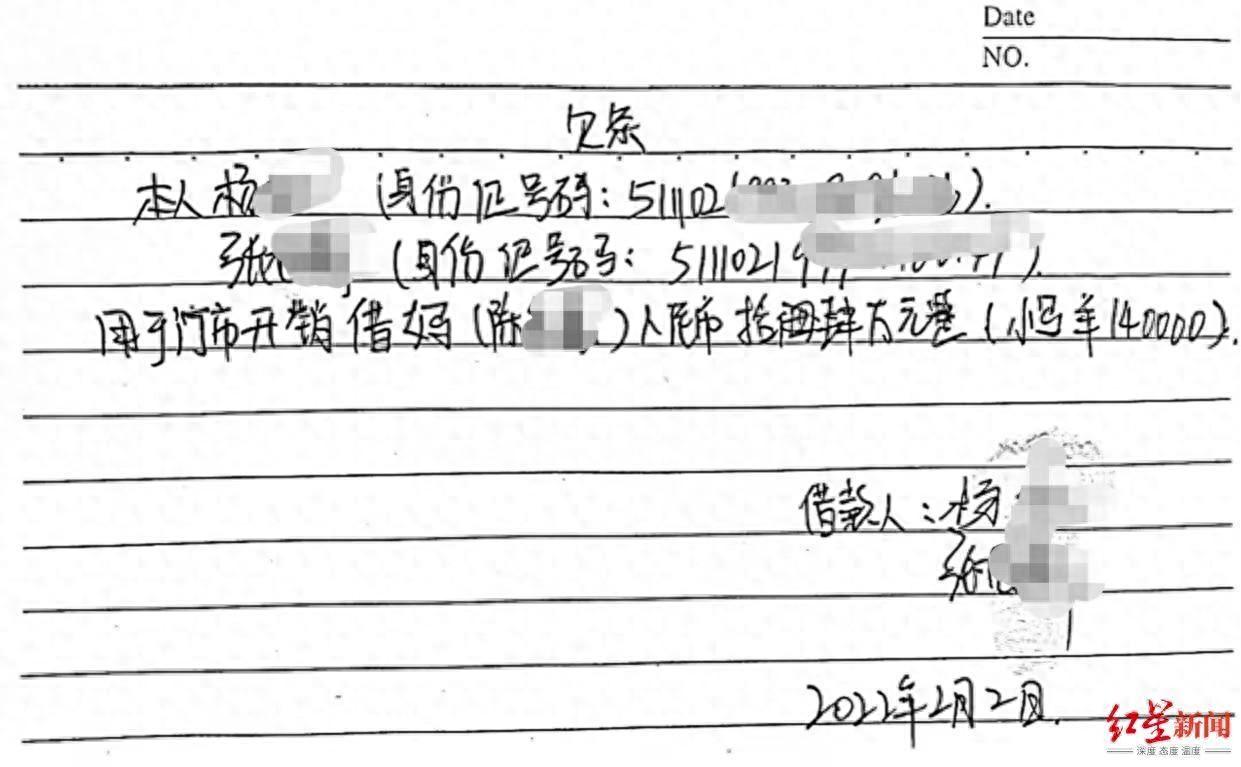 Date
NO.
欠条
本人杨 (身份证号码: 511102 ).
张 (身份证号码: 5111021 ).
用于门市开销借妈(陈 )人民币拾肆万元整(小写¥140000).
借款人:杨
张
2022年2月2日.
红星新闻
深度 态度 温度